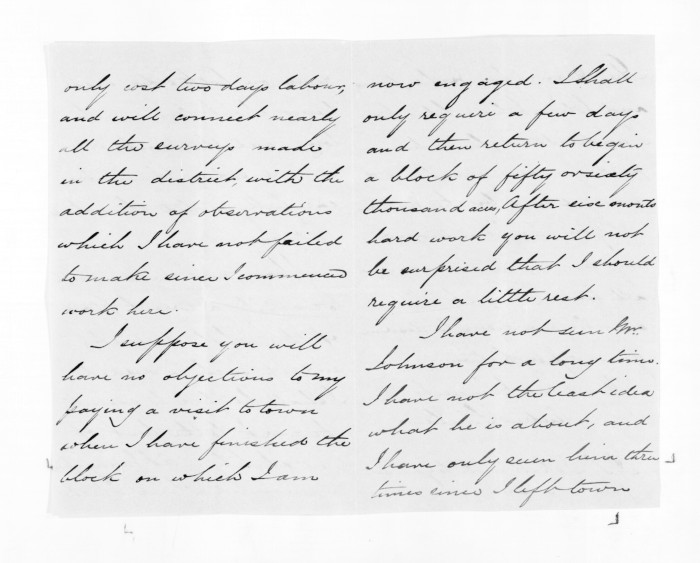 only cost two days labour,
and will connect nearly
all the surveys made
in the district, with the
addition of observations
which I have not failed
to make since I commenced
work here.
I suppose you will
have no objections to my
paying a visit to town
when I have finished the
block on which I am
now engaged. I shall
only require a few days
and then return to begin
a block of fifty or sixty
thousand acres, After six months
hard work you will not
be surprised that I should
require a little rest.
I have not seen Mr.
Johnson for a long time.
I have not the least idea
what he is about, and
I have only seen him three
times since I left town